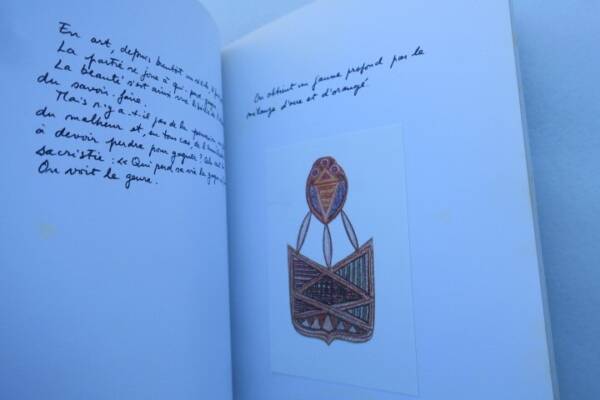 En art, depuis bientôt un siècle,
La partie se joue à qui perd gagne
La beauté s'est ainsi vue
du savoir-faire.
Mais n'y a-t-il pas de la
du malheur et, en tout cas, de
à devoir perdre pour gagner ? Cela
sacristie : « Qui perd sa vie la gagne
On voit le genre.
On obtient un jaune profond par le
mélange d'ocre et d'orangé.